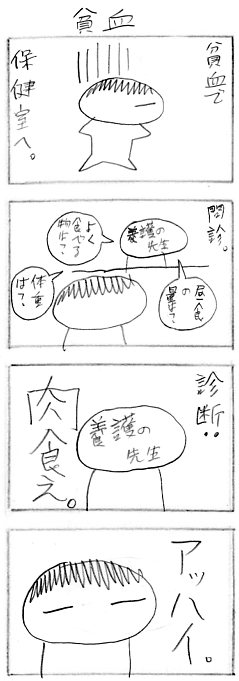 貧血
貧血で
保健室へ。
問診。
養護の
先生
よく
食べる
物は?
昼食
の
量は?
体重
は?
診断:
養護の
先生
肉食え。
アッハイ。